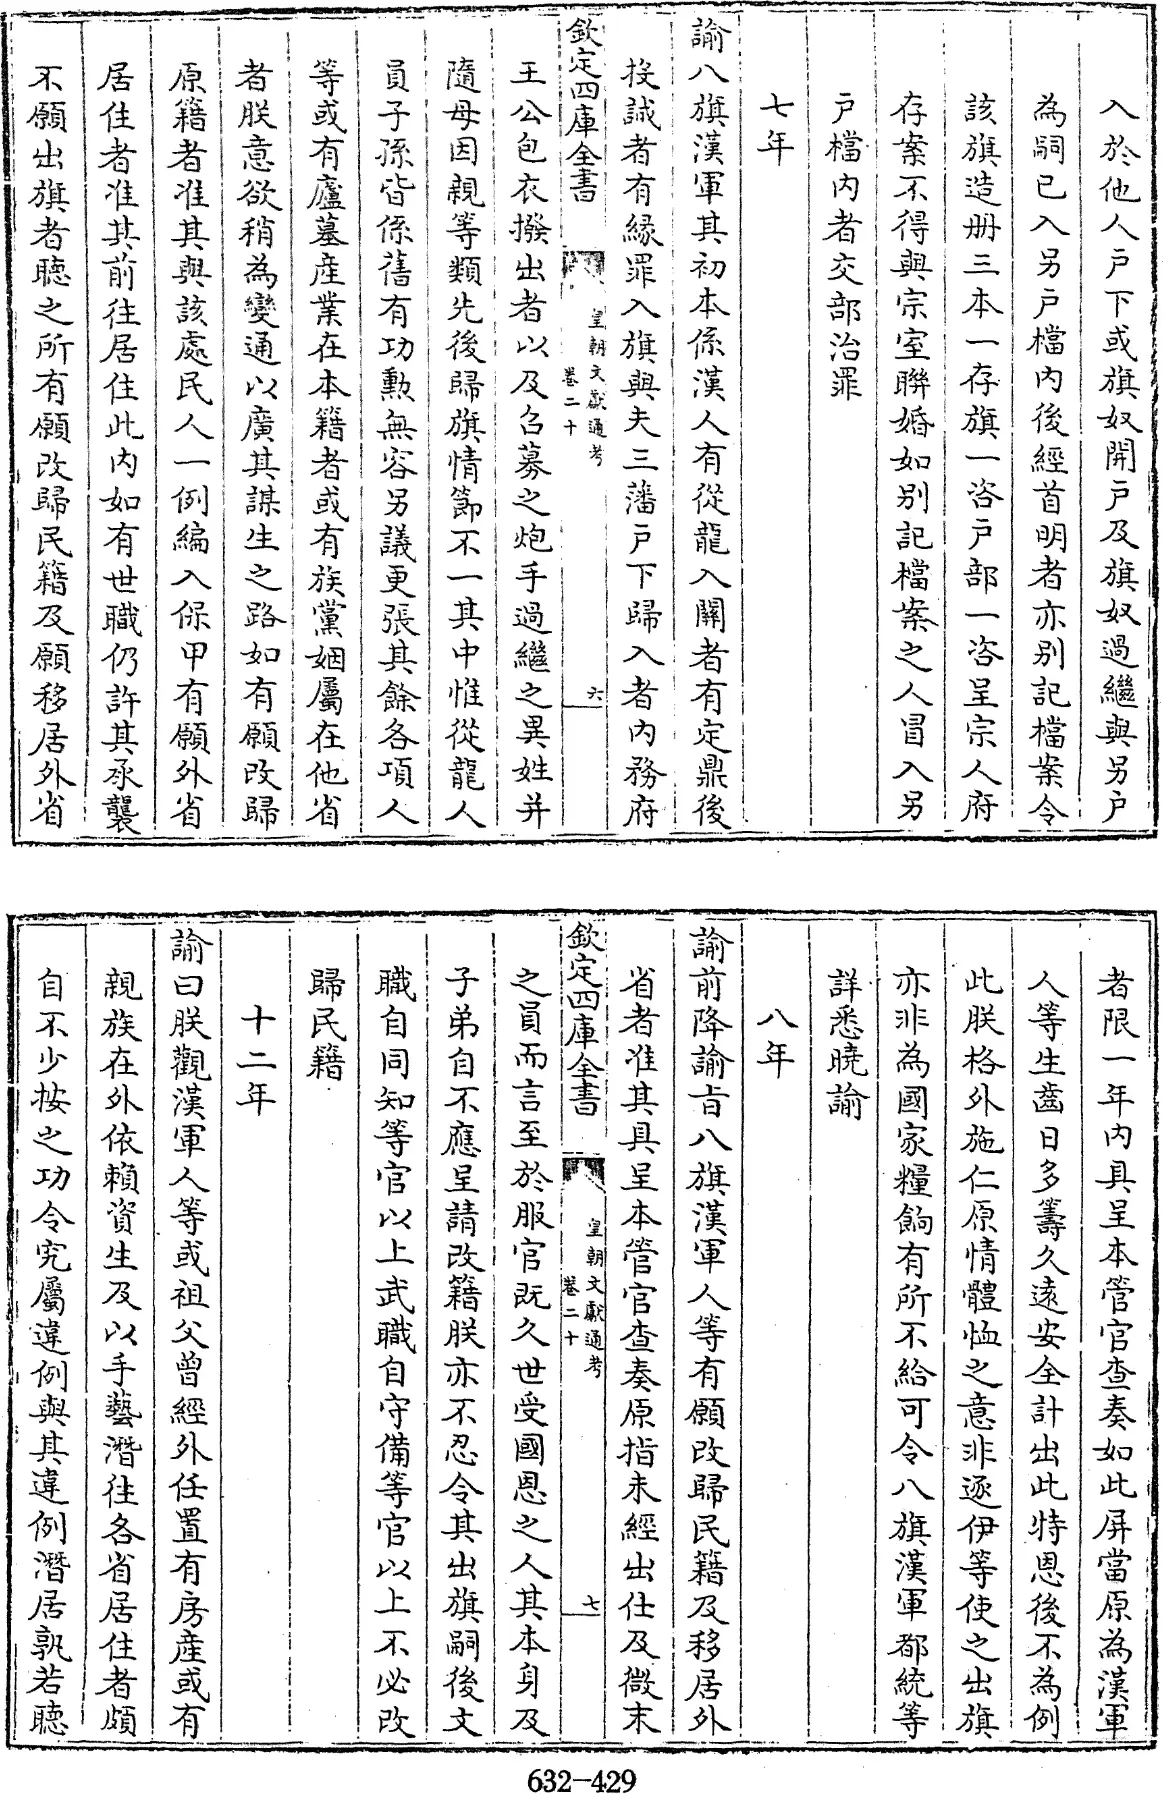 入於他人戸下或旗奴開戸及旗奴過繼與另戸
為嗣已入另戸檔内後經首明者亦别記檔案令
該旗造册三本一存旗一咨戸部一咨呈宗人府
存案不得與宗室聨婚如别記檔案之人冒入另
戸檔内者交部治罪
七年
諭八旗漢軍其初本係漢人有從龍入闗者有定鼎後
投誠者有縁罪入旗與夫三藩戸下歸入者内務府
欽定四庫全書
皇朝文獻通考
卷二十
六
王公包衣撥出者以及召募之炮手過繼之異姓并
隨母因親等類先後歸旗情節不一其中惟從龍人
員子孫皆係舊有功勲無容另議更張其餘各項人
等或有廬墓産業在本籍者或有族黨姻屬在他省
者朕意欲稍為變通以廣其謀生之路如有願改歸
原籍者准其與該處民人一例編入保甲有願外省
居住者准其前往居住此内如有世職仍許其承襲
不願出旗者聽之所有願改歸民籍及願移居外省
者限一年内具呈本管官查奏如此屏當原為漢軍
人等生齒日多籌久遠安全計出此特恩後不為例
此朕格外施仁原情體恤之意非逐伊等使之出旗
亦非為國家糧餉有所不給可令八旗漢軍都統等
詳悉曉諭
八年
諭前降諭旨八旗漢軍人等有願改歸民籍及移居外
省者准其具呈本管官查奏原指未經出仕及微末
欽定四庫全書
皇朝文獻通考
卷二十
七
之員而言至於服官既久世受國恩之人其本身及
子弟自不應呈請改籍朕亦不忍令其出旗嗣後文
職自同知等官以上武職自守備等官以上不必改
歸民籍
十二年
諭曰朕觀漢軍人等或祖父曾經外任置有房産或有
親族在外依賴資生及以手藝潛往各省居住者頗
自不少按之功令究屬違例與其違例潛居孰若聽
632-429